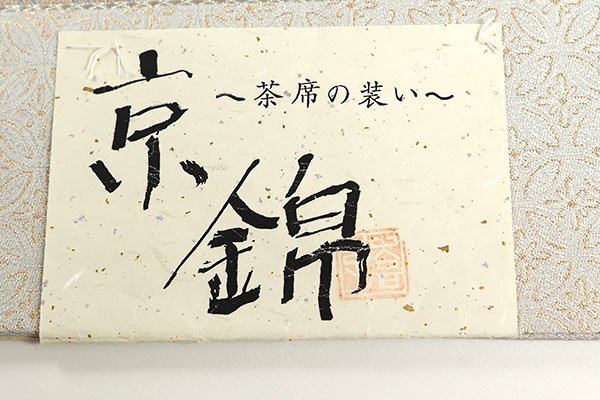 ～茶席の装い～
京錦